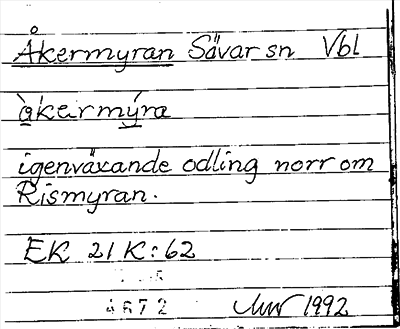 Åkermyran Sävar sn Vbl
àkermýra
igenväxande odling norr om
Rismyran.
EK 21 K:62
4672
1992